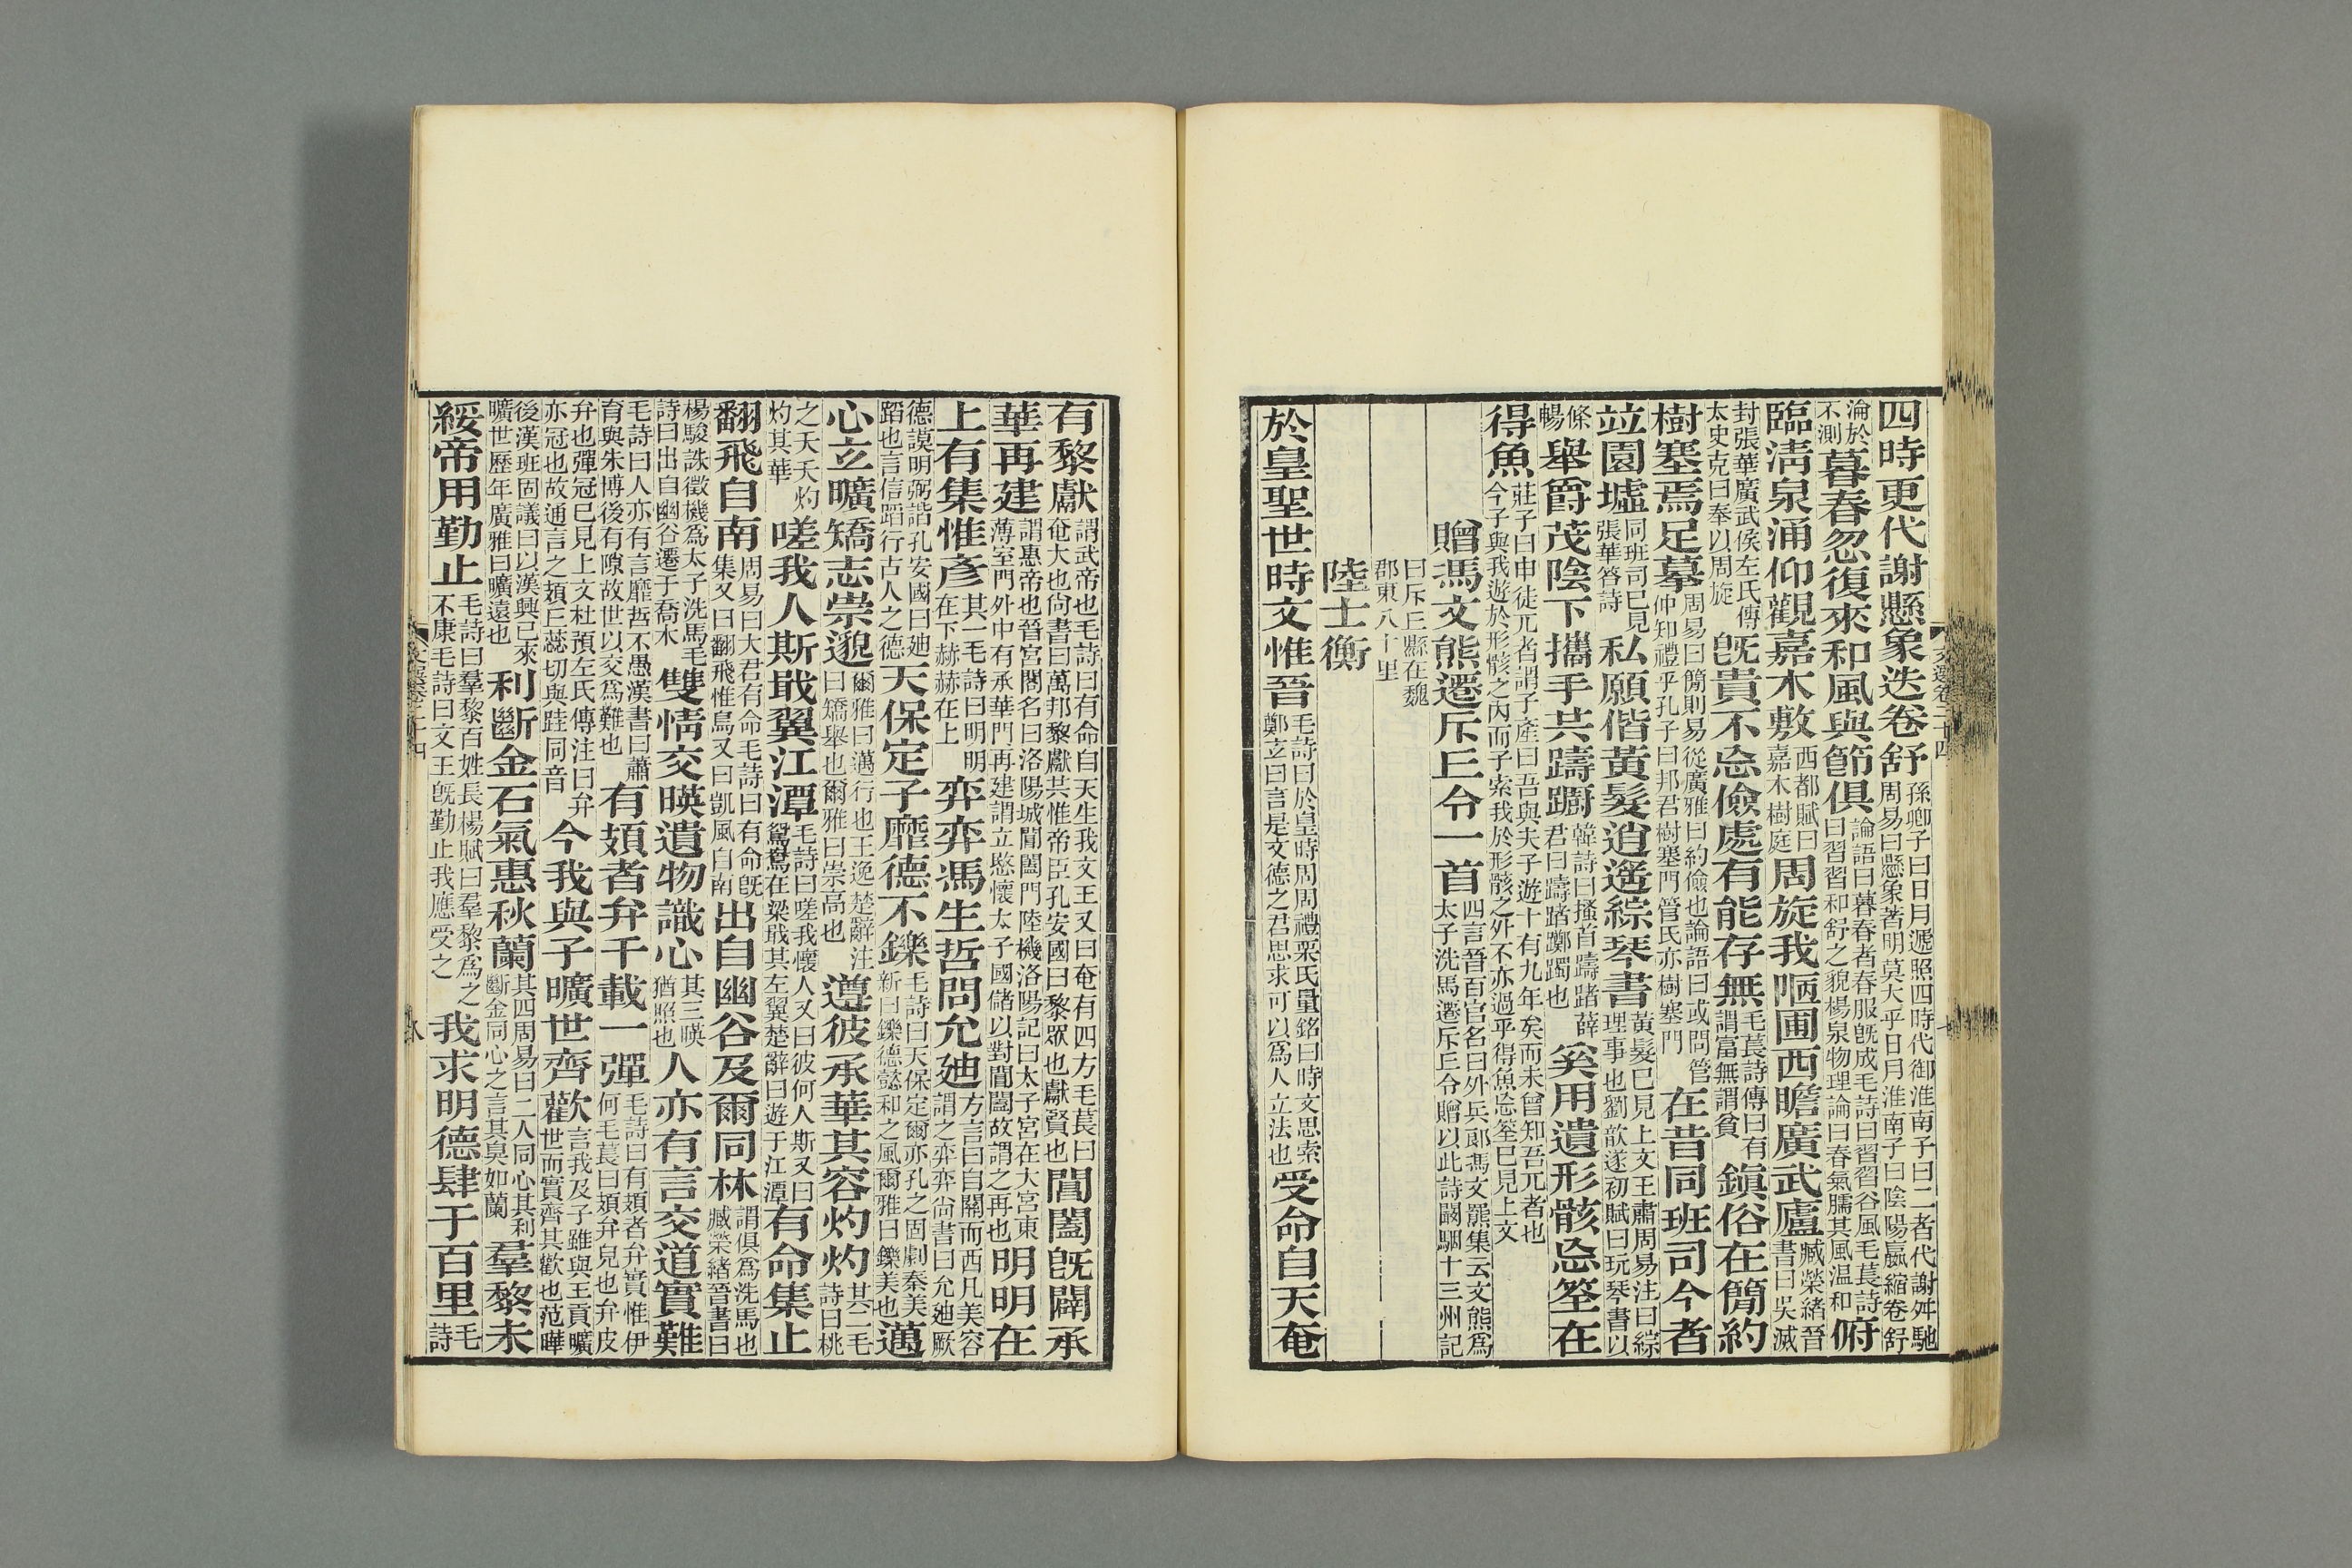 四時更代謝懸象迭卷舒孫卿子曰日月遞照四時代御淮南子曰二者代謝舛馳周易曰懸象著明莫大乎日月淮南子曰陰陽嬴縮卷舒
淪於不測暮春忽復來和風與節俱論語曰暮春者春服旣成毛詩曰習習谷風毛萇詩曰習習和舒之貌楊泉物理論曰春氣臑其風温和俯
臨淸泉涌仰觀嘉木敷西都賦曰嘉木樹庭周旋我陋圃西瞻廣武廬臧榮緒晉書曰吳滅
封張華廣武侯左氏傳太史克曰奉以周旋旣貴不忩儉處有能存無毛萇詩傳曰有謂富無謂貧鎭俗在簡約
樹塞焉足摹周易曰簡則易從廣雅曰約儉也論語曰或問管仲知禮乎孔子曰邦君樹塞門管氏亦樹塞門在昔同班司今者
竝園墟同班司已見張華答詩私願偕黃髮逍遙綜琴書黃髮已見上文王肅周易注曰綜理事也劉歆遂初賦曰玩琴書以
條暢舉爵茂陰下攜手共躊躕韓詩曰搔首躊躇薛君曰躊躇躑躅也奚用遺形骸忩筌在
得魚莊子曰申徒兀者謂子產曰吾與夫子遊十有九年矣而未曾知吾兀者也今子與我遊於形骸之內而子索我於形骸之外不亦過乎得魚忩筌已見上文
贈馮文熊遷斥丘令一首四言晉百官名曰外兵郞馮文羆集云文熊爲太子洗馬遷斥丘令贈以此詩闞駰十三州記
曰斥丘縣在魏郡東八十里
陸士衡
於皇聖世時文惟晉毛詩曰於皇時周周禮㮚氏量銘曰時文思索鄭玄曰言是文德之君思求可以爲人立法也受命自天奄
有黎獻謂武帝也毛詩曰有命自天生我文王又曰奄有四方毛萇曰奄大也尙書曰萬邦黎獻共惟帝臣孔安國曰黎眾也獻賢也閶闔旣闢承
華再建謂惠帝也晉宮閣名曰洛陽城閶闔門陸機洛陽記曰太子宮在大宮東薄室門外中有承華門再建謂立愍懷太子國儲以對閶闔故謂之再也明明在
上有集惟彥其一毛詩曰明明在下赫赫在上弈弈馮生哲問允迪方言曰自關而西凡美容謂之弈弈尙書曰允廸厥
德謨明弼諧孔安國曰廸蹈也言信蹈行古人之德天保定子靡德不鑠毛詩曰天保定爾亦孔之固劇秦美新曰鑠德懿和之風爾雅曰鑠美也邁
心玄曠矯志崇邈爾雅曰邁行也王逸楚辭注曰矯舉也爾雅曰崇高也遵彼承華其容灼灼其二毛詩曰桃
之夭夭灼灼其華嗟我人斯戢翼江潭毛詩曰嗟我懷人又曰彼何人斯又曰鴛鴦在梁戢其左翼楚辭曰遊于江潭有命集止
翻飛自南周易曰大君有命毛詩曰有命旣集又曰翻飛惟鳥又曰凱風自南出自幽谷及爾同林謂俱爲洗馬也臧榮緒晉書曰
楊駿誅徵機爲太子洗馬毛詩曰出自幽谷遷于喬木雙情交暎遺物識心其三暎猶照也人亦有言交道實難
毛詩曰人亦有言靡哲不愚漢書曰蕭育與朱博後有隙故世以交爲難也有頍者弁千載一彈毛詩曰有頍者弁實惟伊何毛萇曰頍弁皃也弁皮
弁也彈冠已見上文杜預左氏傳注曰弁亦冠也故通言之頍丘蕊切與跬同音今我與子曠世齊歡言我及子雖與王貢曠世而實齊其歡也范曄
後漢班固議曰以漢興已來曠世歷年廣雅曰曠遠也利斷金石氣惠秋蘭其四周易曰二人同心其利斷金同心之言其臭如蘭羣黎未
綏帝用勤止毛詩曰羣黎百姓長楊賦曰羣黎爲之不康毛詩曰文王旣勤止我應受之我求明德肆于百里毛詩